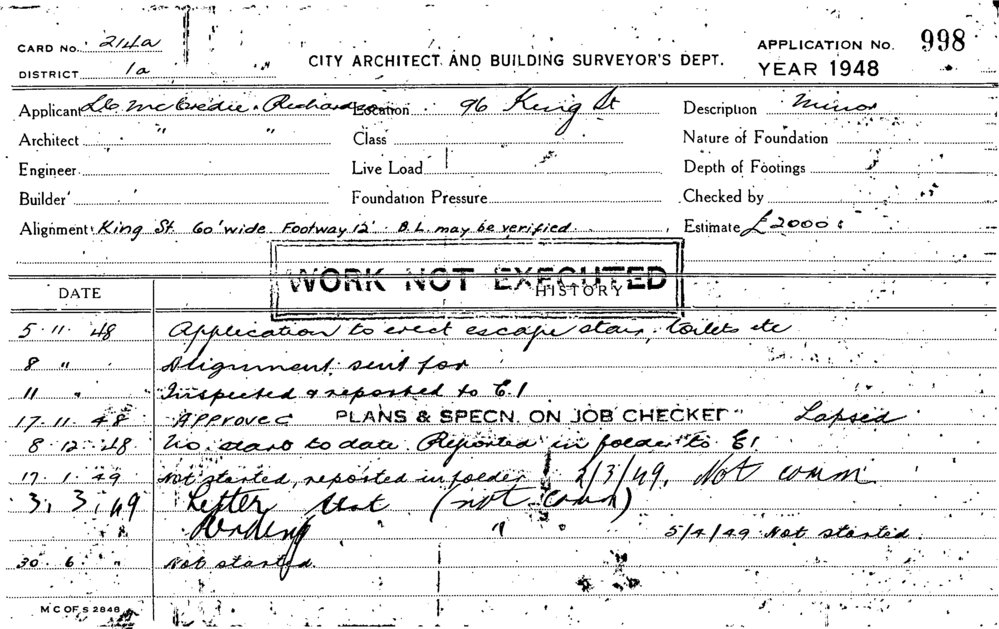 CARD No. 214a
DISTRICT 1a
CITY ARCHITECT AND BUILDING SURVEYOR'S DEPT.
APPLICATION No. 998
YEAR 1948
Applicant McCredie & Richardson Location 96 King St Description Minor
Architect " " Class Nature of Foundation
Engineer Live Load Depth of Footings
Builder Foundation Pressure Checked by
Alignment King St. 60' wide Footway 12' B.L. may be verified. Estimate £2000 :
WORK NOT EXECUTED
DATE HISTORY
5 . 11 . 48 Application to erect escape stair, toilets etc
8 " Alignment sent for
11 " Inspected & reported to E.1
17 . 11 . 48 APPROVED PLANS & SPECN. ON JOB CHECKED " Lapsed
8 . 12 . 48 No start to date Reported in folder to E1
17 . 1 . 49 Not started, reported in folder 2/3/49, Not comm
3. 3. 49 Letter (not comm)
" Pending " " 5/4/49 Not started.
30 . 6 . " Not started.
M C OF S 2848